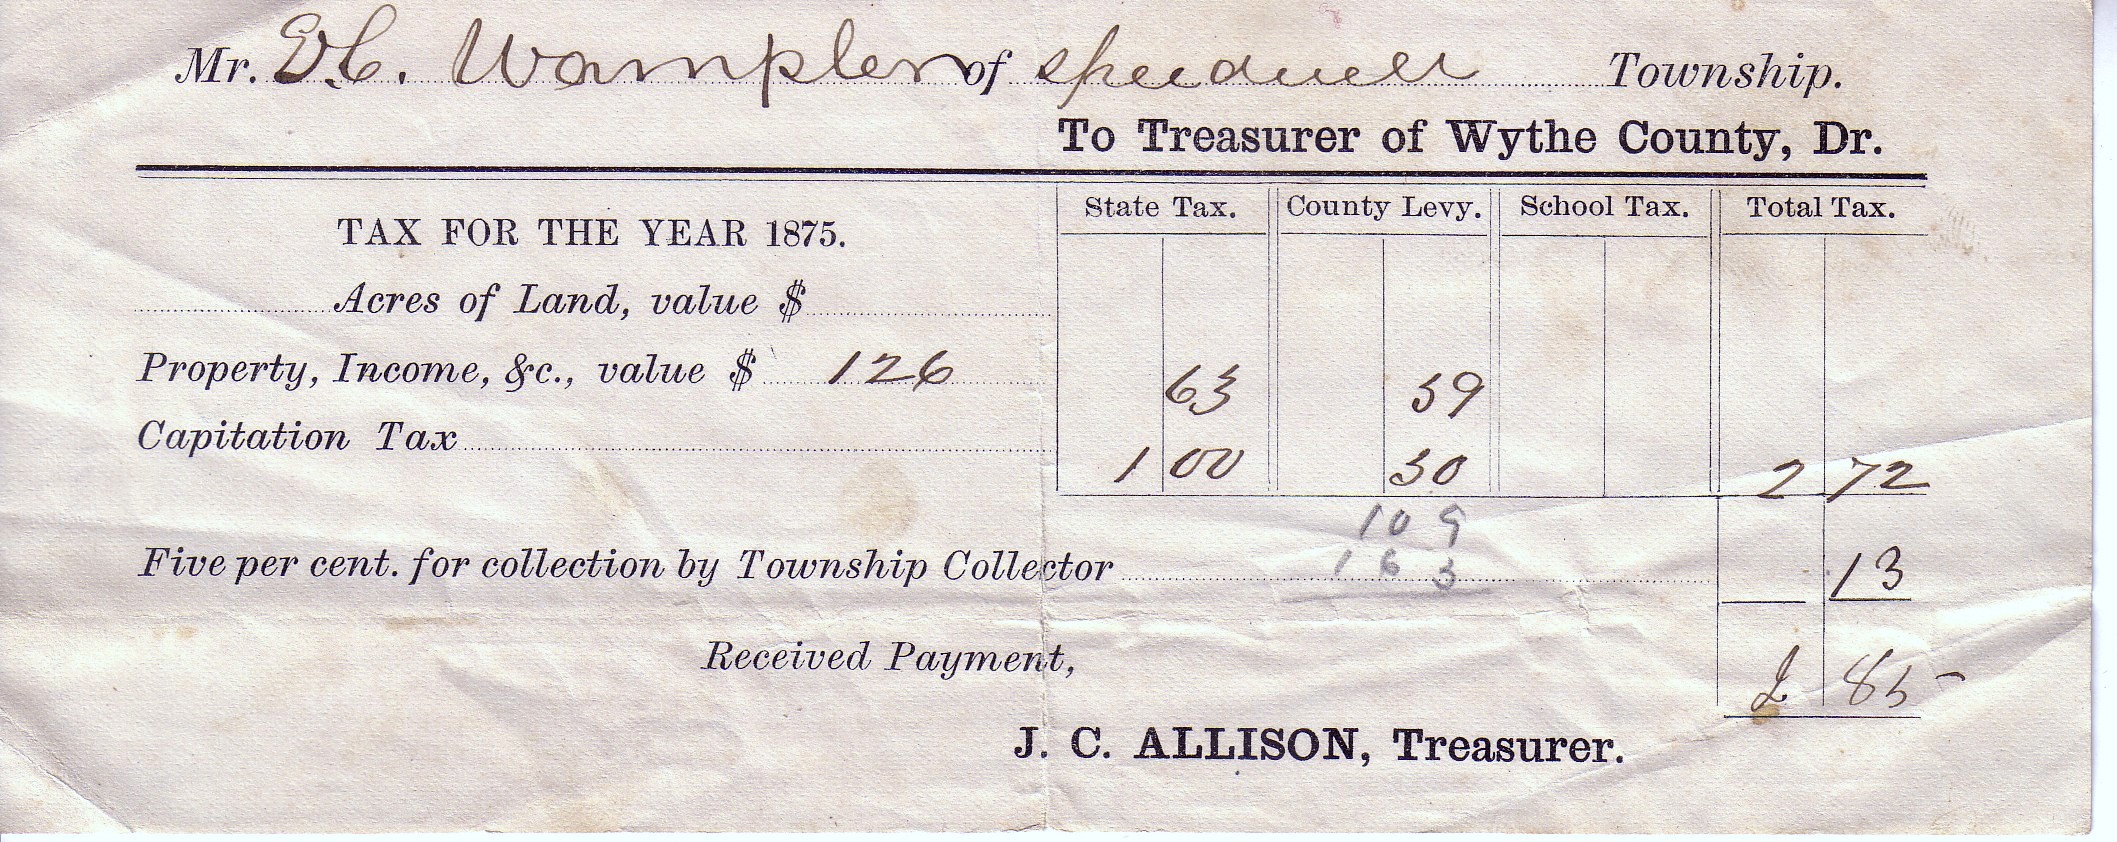 Mr. D.C. Wampler of Speedwell Township.
To Treasurer of Wythe County, Dr.
State Tax. County Levy. School Tax. Total Tax.
TAX FOR THE YEAR 1875.
Acres of Land, value $
Property, Income, &c., value $ 126 63 59
Capitation Tax 1 00 50 2 72
109
Five per cent. for collection by Township Collector 163 13
Received Payment, 2 85
J. C. ALLISON, Treasurer.